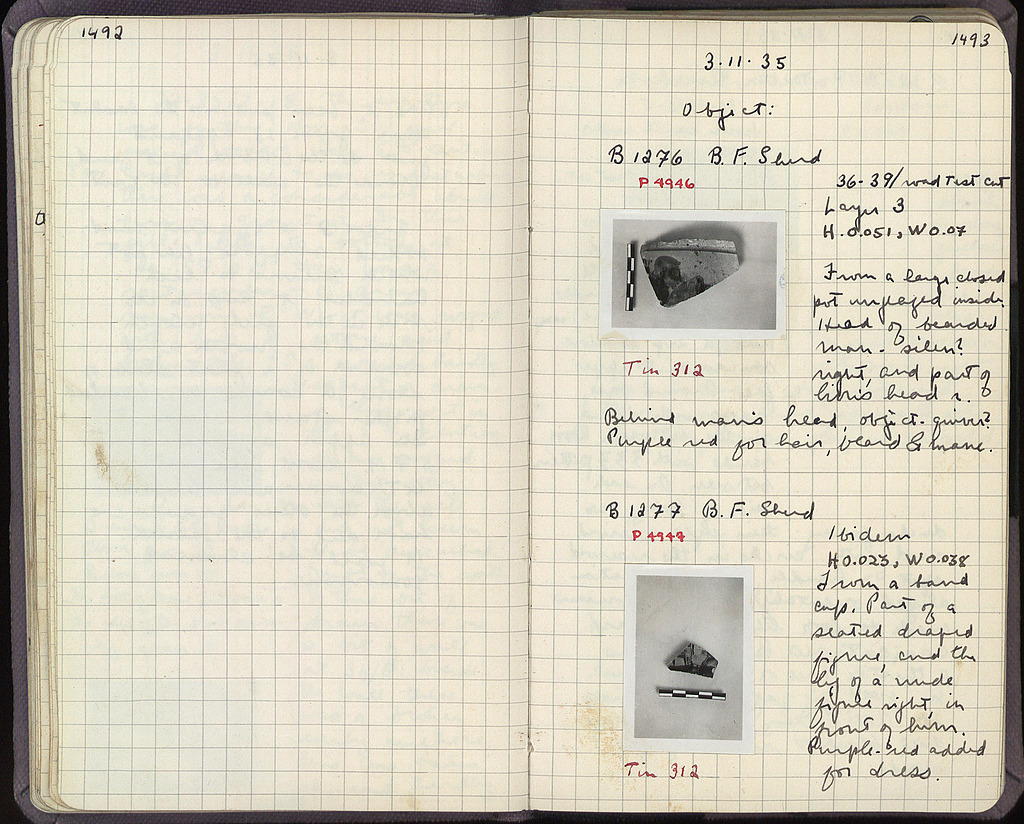 1492
1493
3·11·35
Object:
B 1276 B.F. Sherd
P 4946
36-39/ road Test Cut
Layer 3
H.0.051, W 0.07
From a large closed
pot unglazed inside.
Head of bearded
man - silen?
right, and part of
head r.
Behind man's head, object - quiver?
Purple red for hair, beard & mane.
Tin 312
B 1277 B.F. Sherd
P 4947
Ibidem
H 0.023, W 0.038
From a band
cup. Part of a
seated draped
figure, and the
leg of a nude
figure right, in
front of him.
Purple-red added
for dress.
Tin 312